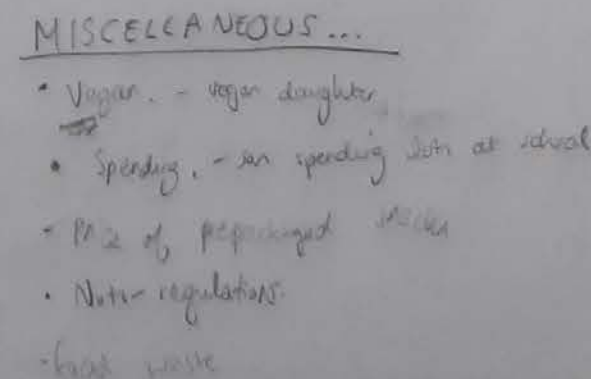 MISCELLANEOUS...
• Vegan. - vegan daughter
• Spending. - son spending lots at school
• of prepackaged snacks
• Nuts - regulations.
• food waste